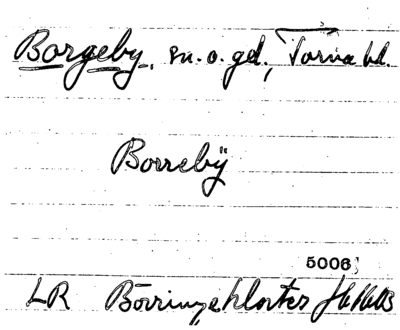 Borgeby, sn. o. gd., Torna hd.
Borrebÿ
5006
LR Börringekloster